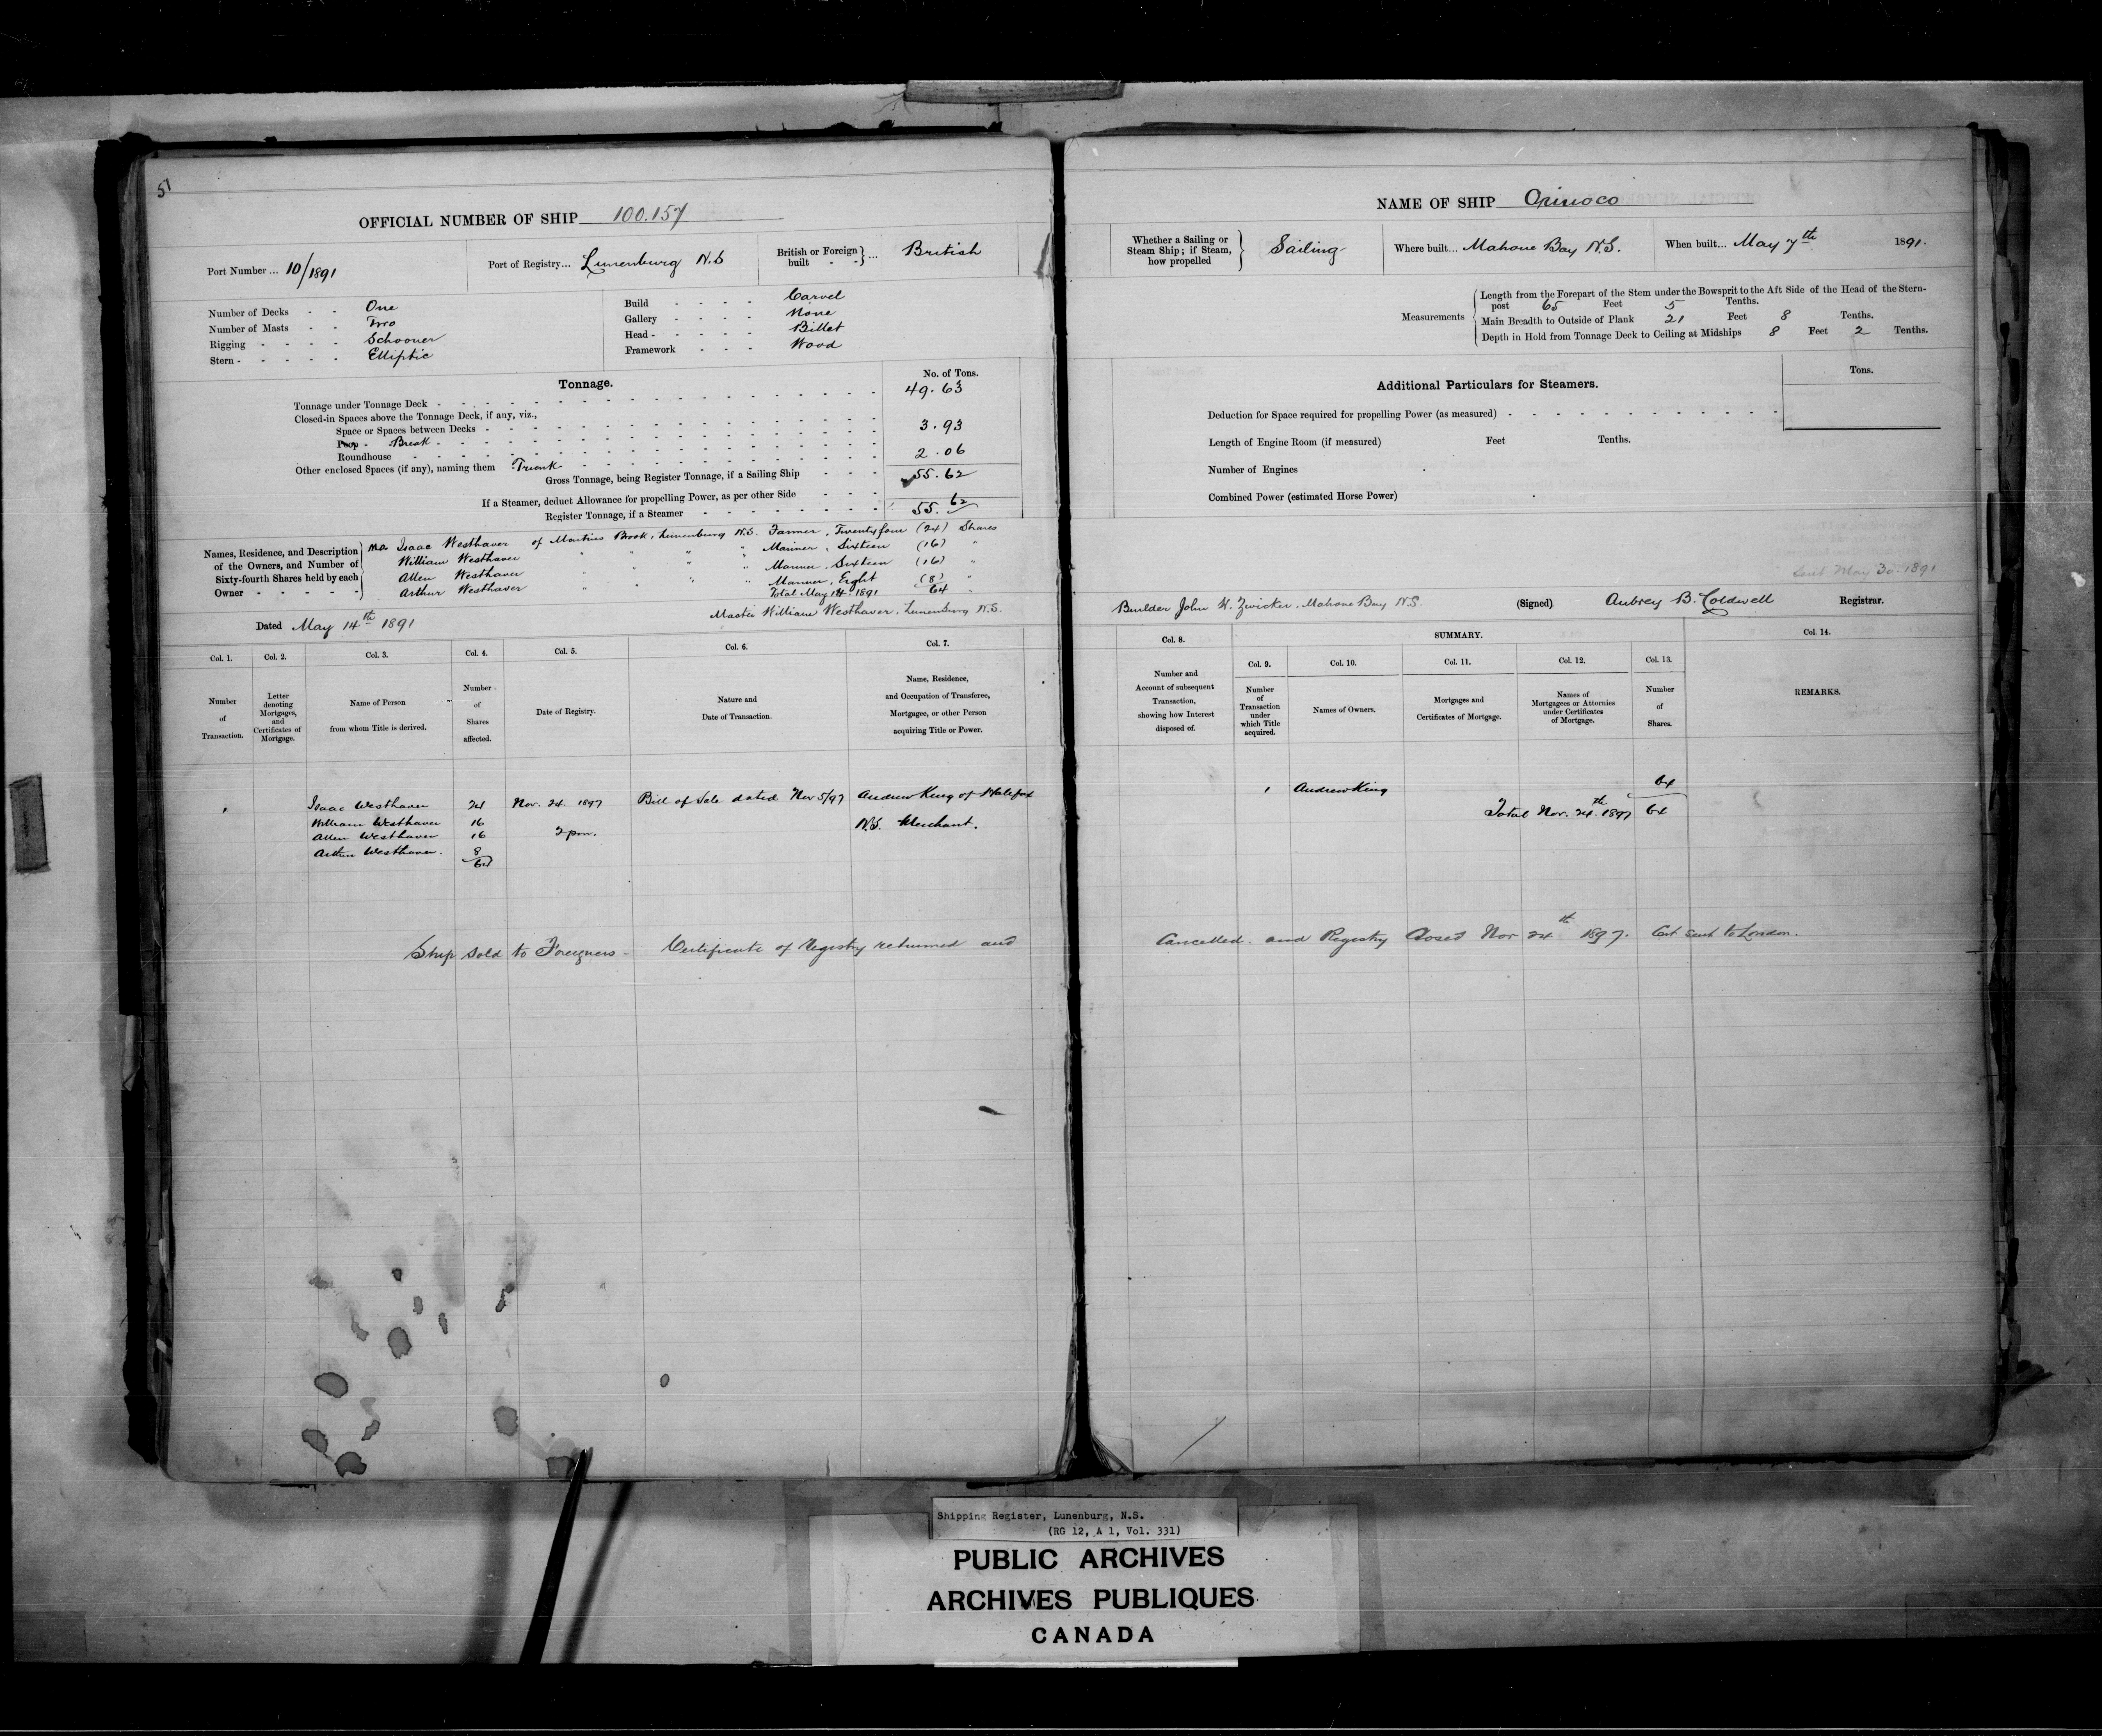 51
OFFICIAL NUMBER OF SHIP 100.157
Port Number ... 10/1891
Port of Registry... Lunenburg N.S
British or Foreign built - - } ... British
Number of Decks - - One
Number of Masts - - Two
Rigging - - - - - Schooner
Stern - - - - - Elliptic
Build - - - - Carvel
Gallery - - - - None
Head - - - - - Billet
Framework - - - Wood
Tonnage.
No. of Tons.
Tonnage under Tonnage Deck - 49.63
Closed-in Spaces above the Tonnage Deck, if any, viz.,
Space or Spaces between Decks - 3.93
Poop - Break -
Roundhouse - 2.06
Other enclosed Spaces (if any), naming them Trunk
Gross Tonnage, being Register Tonnage, if a Sailing Ship - - - 55.62
If a Steamer, deduct Allowance for propelling Power, as per other Side - - -
Register Tonnage, if a Steamer - 55.62
Names, Residence, and Description of the Owners, and Number of Sixty-fourth Shares held by each Owner - - - - -
Isaac Westhaver of Martins Brook, Lunenburg N.S. Farmer, Twenty four (24) Shares
William Westhaver " " " " Mariner, Sixteen (16) "
Allen Westhaver " " " " Mariner, Sixteen (16) "
Arthur Westhaver " " " " Mariner, Eight (8) "
Total May 14 1891 64 "
Dated May 14th 1891
Master William Westhaver, Lunenburg N.S.
Col. 1. Col. 2. Col. 3. Col. 4. Col. 5. Col. 6. Col. 7.
Number of Transaction.
Letter denoting Mortgages, and Certificates of Mortgage.
Name of Person from whom Title is derived.
Number of Shares affected.
Date of Registry.
Nature and Date of Transaction.
Name, Residence, and Occupation of Transferee, Mortgagee, or other Person acquiring Title or Power.
1 Isaac Westhaver 24 Nov. 24. 1897 Bill of Sale dated Nov 5/97 Andrew King of Halifax
William Westhaver 16 N.S. Merchant.
Allen Westhaver 16 2 pm.
Arthur Westhaver. 8
64
Ship sold to Foreigners - Certificate of Registry returned and
NAME OF SHIP Orinoco
Whether a Sailing or Steam Ship; if Steam, how propelled } Sailing
Where built... Mahone Bay N.S.
When built... May 7th 1891.
Measurements
Length from the Forepart of the Stem under the Bowsprit to the Aft Side of the Head of the Stern-
post 65 Feet 5 Tenths.
Main Breadth to Outside of Plank 21 Feet 8 Tenths.
Depth in Hold from Tonnage Deck to Ceiling at Midships 8 Feet 2 Tenths.
Additional Particulars for Steamers.
Tons.
Deduction for Space required for propelling Power (as measured) -
Length of Engine Room (if measured) Feet Tenths.
Number of Engines
Combined Power (estimated Horse Power)
Sent May 30. 1891
Builder John H. Zwicker, Mahone Bay N.S.
(Signed) Aubrey B. Coldwell Registrar.
Col. 8. SUMMARY. Col. 14.
Col. 9. Col. 10. Col. 11. Col. 12. Col. 13.
Number and Account of subsequent Transaction, showing how Interest disposed of.
Number of Transaction under which Title acquired.
Names of Owners.
Mortgages and Certificates of Mortgage.
Names of Mortgagees or Attornies under Certificates of Mortgage.
Number of Shares.
REMARKS.
1 Andrew King 64
Total Nov. 24th. 1897 64
Cancelled. and Registry Closed Nov 24th 1897. Cert sent to London.
Shipping Register, Lunenburg, N.S.
(RG 12, A 1, Vol. 331)
PUBLIC ARCHIVES
ARCHIVES PUBLIQUES
CANADA